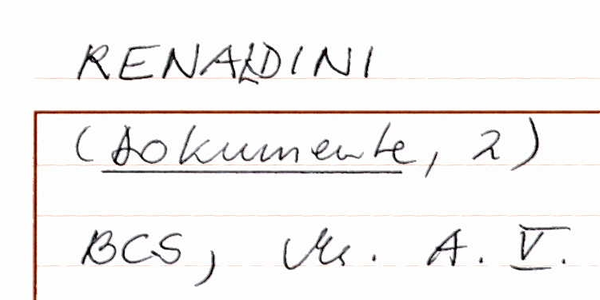 RENALDINI
(Dokumente, 2)
BCS, Ms. A. V.